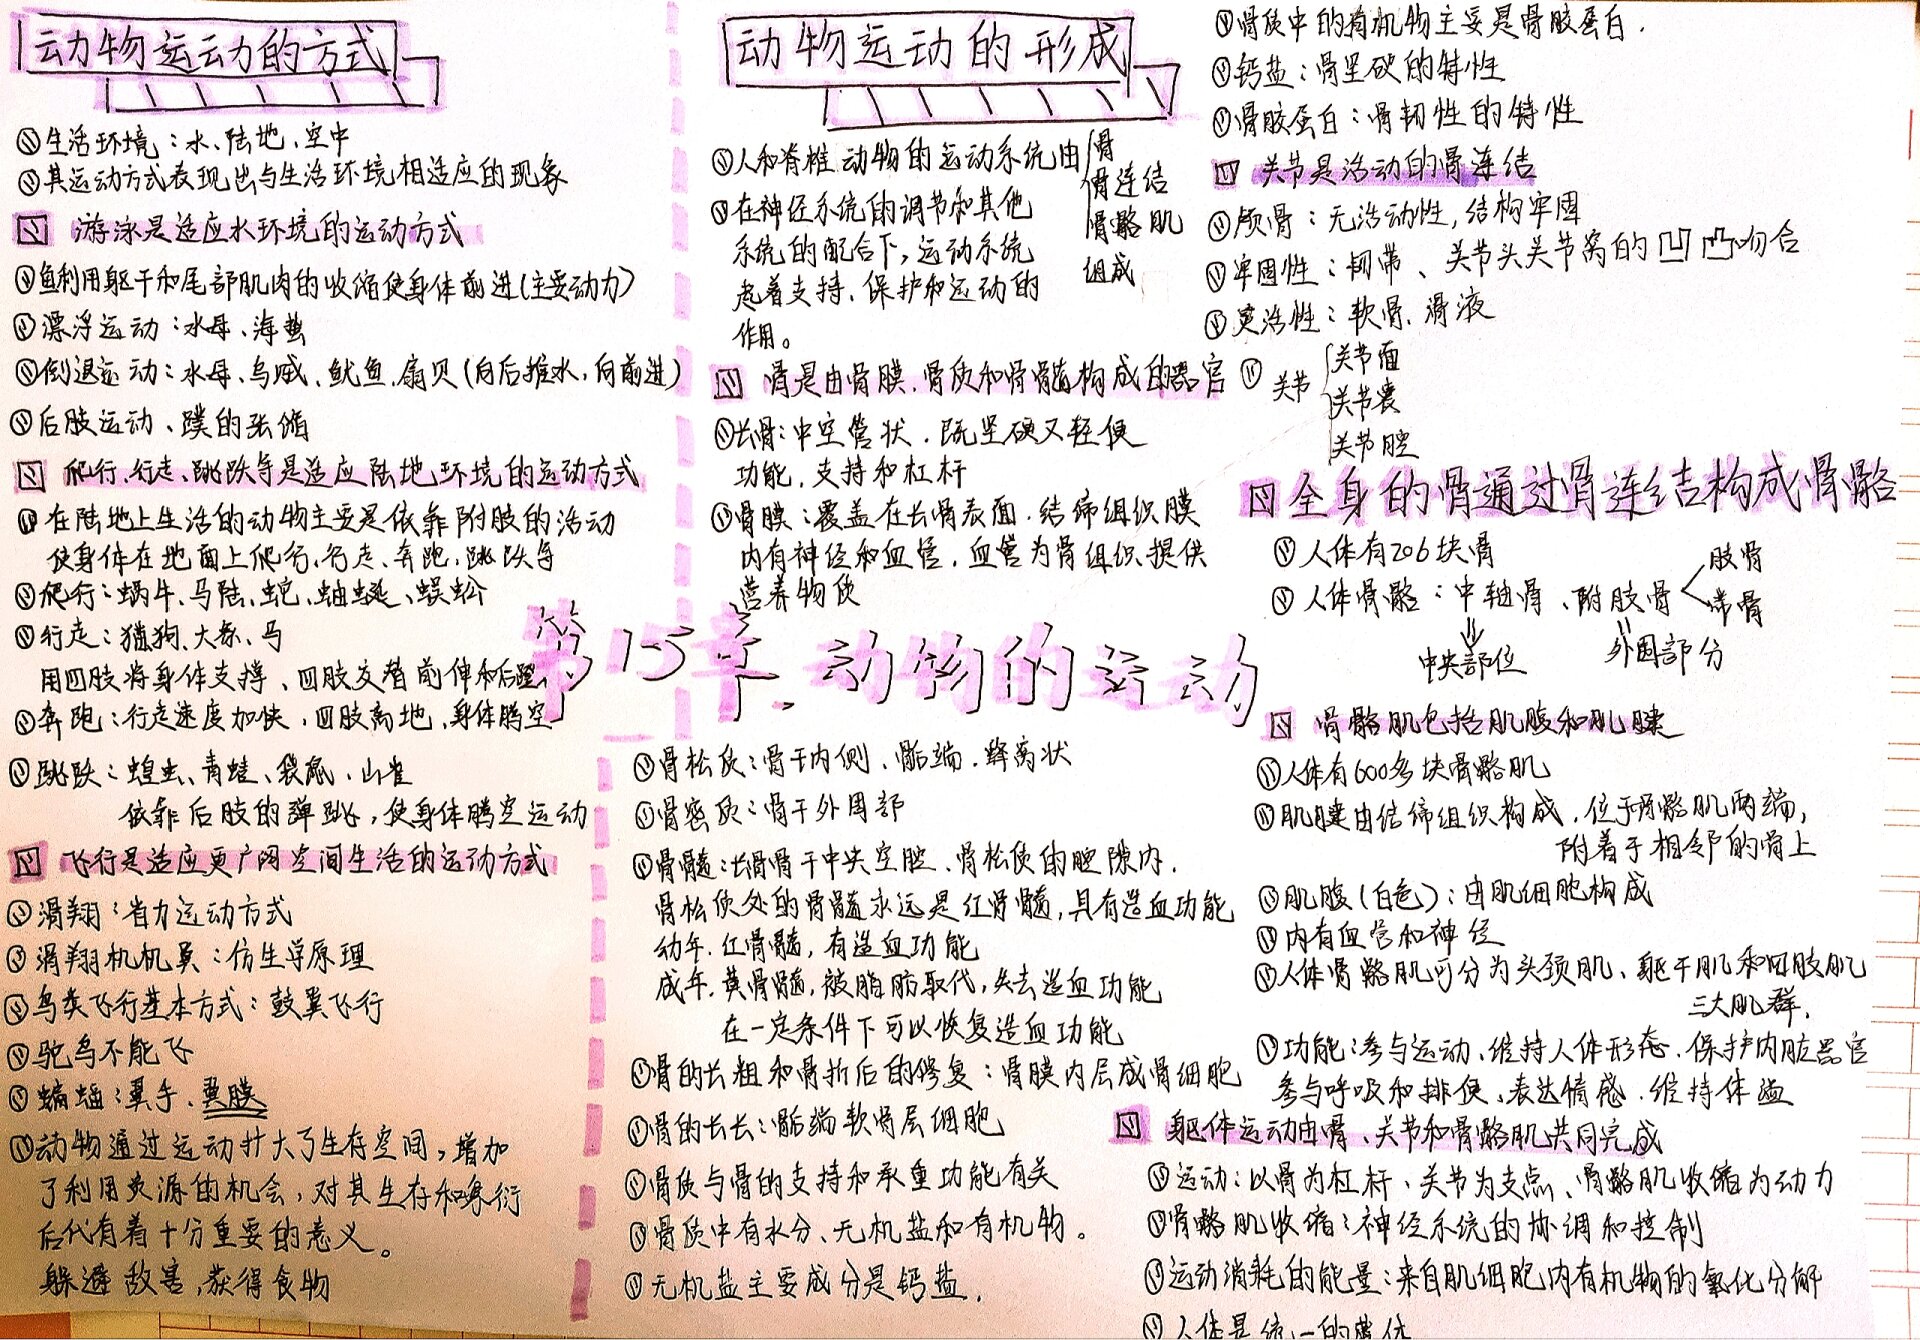 动物运动的方式
生活环境：水、陆地、空中
其运动方式表现出与生活环境相适应的现象
游泳是适应水环境的运动方式
鱼利用躯干和尾部肌肉的收缩使身体前进(主要动力)
漂浮运动：水母、海蜇
倒退运动：水母、乌贼、鱿鱼、扇贝(向后推水，向前进)
后肢运动、蹼的张缩
爬行、行走、跳跃等是适应陆地环境的运动方式
在陆地上生活的动物主要是依靠附肢的活动
使身体在地面上爬行、行走、奔跑、跳跃等
爬行：蜗牛、马陆、蛇、蚰蜒、蜈蚣
行走：猎狗、大象、马
用四肢将身体支撑、四肢交替前伸和后蹬
奔跑：行走速度加快，四肢离地，身体腾空
跳跃：蝗虫、青蛙、袋鼠、山雀
依靠后肢的弹跳，使身体腾空运动
飞行是适应更广阔空间生活的运动方式
滑翔：省力运动方式
滑翔机机翼：仿生学原理
鸟类飞行基本方式：鼓翼飞行
鸵鸟不能飞
蝙蝠：翼手、翼膜
动物通过运动扩大了生存空间，增加
了利用资源的机会，对其生存和繁衍
后代有着十分重要的意义。
躲避敌害，获得食物
动物运动的形成
人和脊椎动物的运动系统由
骨
骨连结
骨骼肌
组成
在神经系统的调节和其他
系统的配合下，运动系统
起着支持、保护和运动的
作用。
骨是由骨膜、骨质和骨髓构成的器官
长骨：中空管状，既坚硬又轻便
功能，支持和杠杆
骨膜：覆盖在长骨表面，结缔组织膜
内有神经和血管，血管为骨组织提供
营养物质
第15章.动物的运动
骨松质：骨干内侧、骺端、蜂窝状
骨密质：骨干外周部
骨髓：长骨骨干中央空腔、骨松质的腔隙内，
骨松质处的骨髓永远是红骨髓，具有造血功能
幼年，红骨髓，有造血功能
成年，黄骨髓，被脂肪取代，失去造血功能
在一定条件下可以恢复造血功能
骨的长粗和骨折后的修复：骨膜内层成骨细胞
骨的长长：骺端软骨层细胞
骨质与骨的支持和承重功能有关
骨质中有水分、无机盐和有机物。
无机盐主要成分是钙盐，
骨质中的有机物主要是骨胶蛋白.
钙盐：骨坚硬的特性
骨胶蛋白：骨韧性的特性
关节是活动的骨连结
颅骨：无活动性，结构牢固
牢固性：韧带、关节头关节窝的凹凸吻合
灵活性：软骨、滑液
关节
关节面
关节囊
关节腔
全身的骨通过骨连结构成骨骼
人体有206块骨
人体骨骼：中轴骨、附肢骨
肢骨
带骨
中央部位
外围部分
骨骼肌包括肌腹和肌腱
人体有600多块骨骼肌
肌腱由结缔组织构成，位于骨骼肌两端，
附着于相邻的骨上
肌腹(白色)：由肌细胞构成
内有血管和神经
人体骨骼肌可分为头颈肌、躯干肌和四肢肌
三大肌群.
功能：参与运动、维持人体形态、保护内脏器官
参与呼吸和排便、表达情感、维持体温
躯体运动由骨、关节和骨骼肌共同完成
运动：以骨为杠杆、关节为支点、骨骼肌收缩为动力
骨骼肌收缩：神经系统的协调和控制
运动消耗的能量：来自肌细胞内有机物的氧化分解
人体是统一的整体